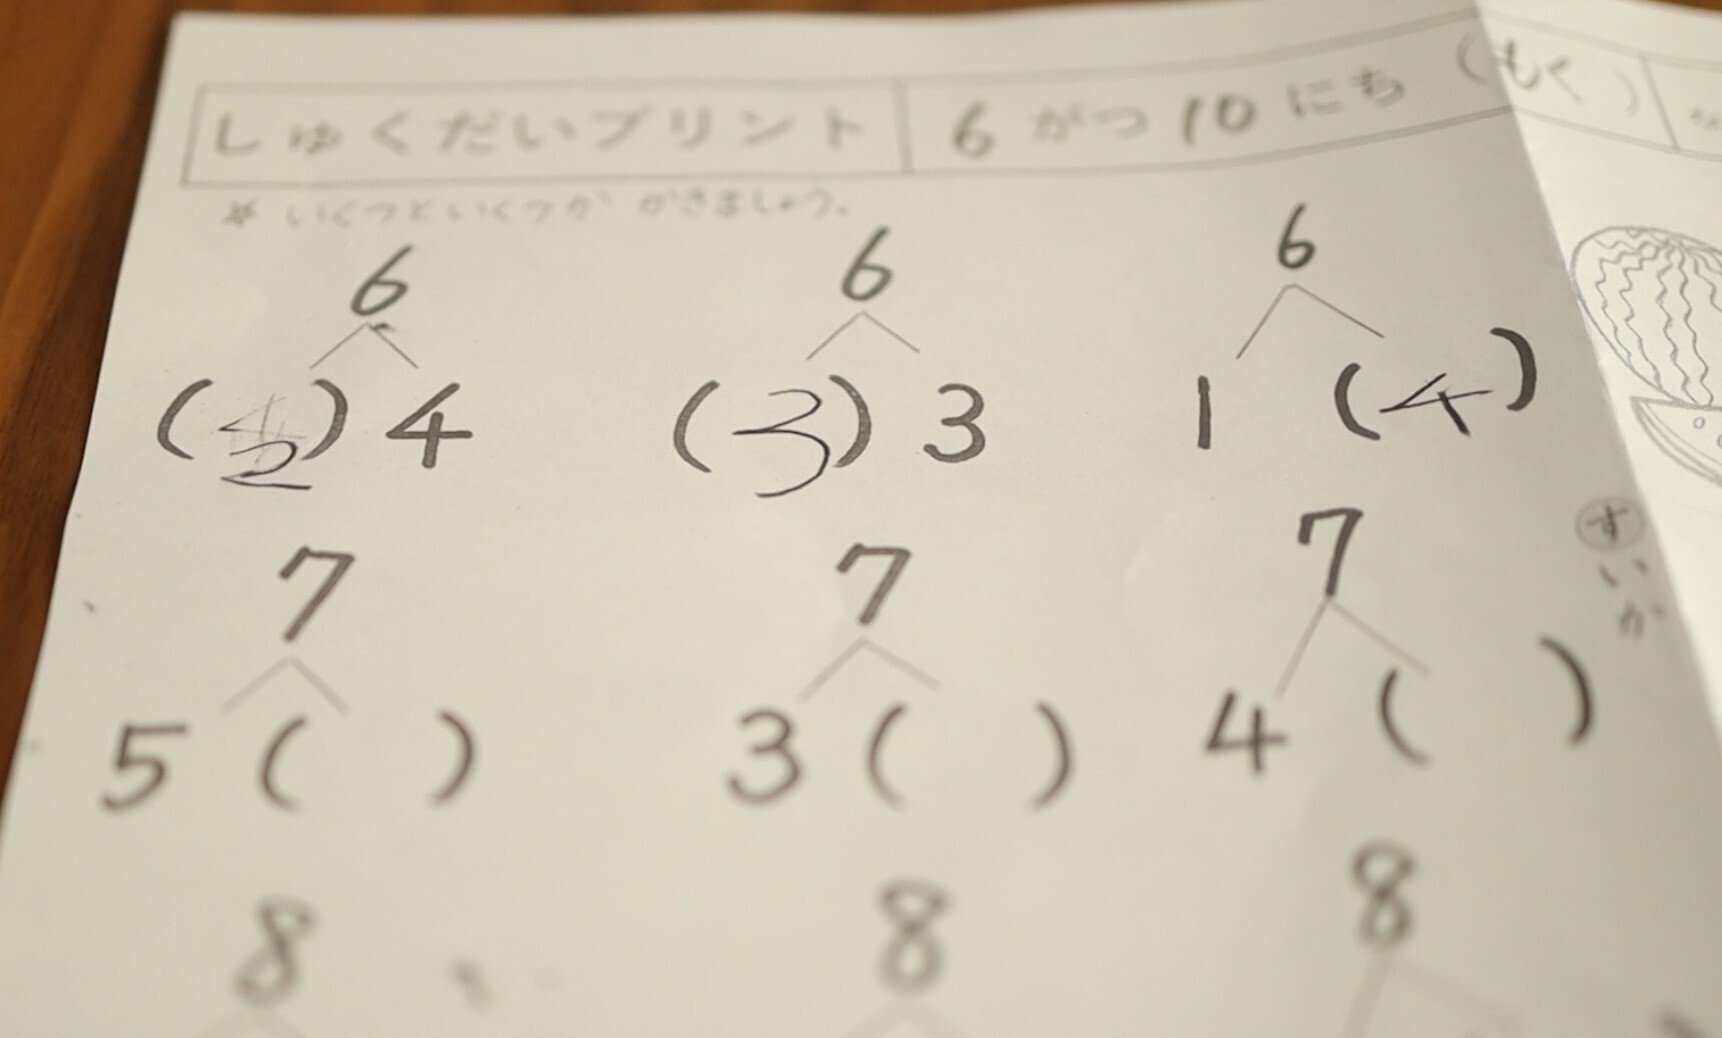 しゅくだいプリント 6がつ10にち(もく)
* いくつといくつか かきましょう。
6 6 6
(2)4 (3)3 1(4)
7 7 7
5( ) 3( ) 4( )
すいか
8 8 8